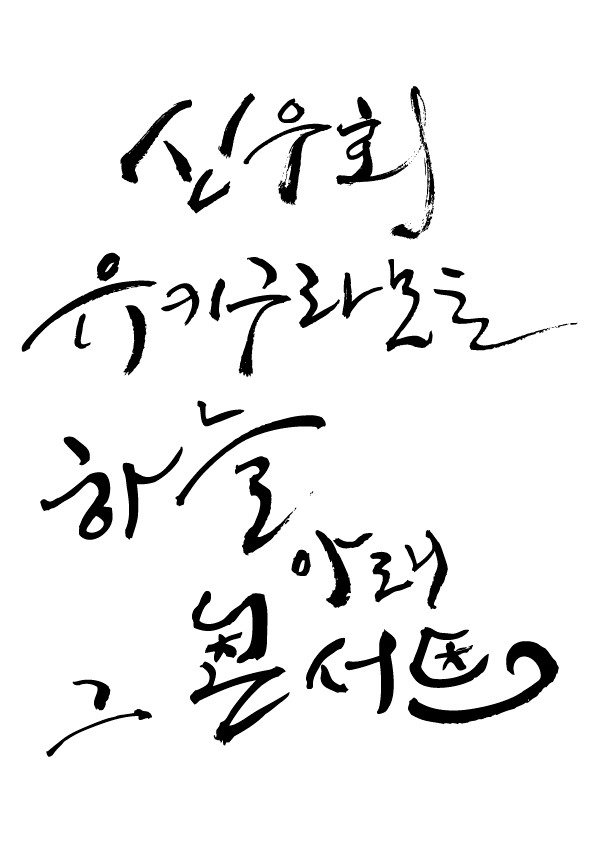 신우회
유키구라모토
하늘 아래
그 콘서트